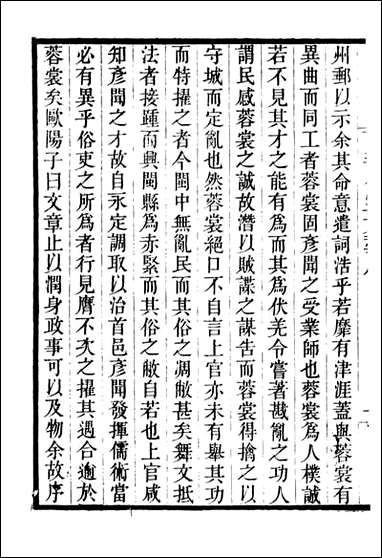 州郵以示余其命意遣詞浩乎若靡有津涯蓋與蓉裳有
異曲而同工者蓉裳固彥聞之受業師也蓉裳為人樸誠
若不見其才之能有為而其為伏羌令嘗著戡亂之功人
謂民感蓉裳之誠故潛以賊諜之謀告而蓉裳得擒之以
守城而定亂也然蓉裳絕口不自言上官亦未有舉其功
而特擢之者今閩中無亂民而其俗之凋敝甚矣舞文抵
法者接踵而興閩縣為赤緊而其俗之敝自若也上官咸
知彥聞之才故自永定調取以治首邑彥聞發揮儒術當
必有異乎俗吏之所為者行見膺不次之擢其遇合逾於
蓉裳矣歐陽子曰文章止以潤身政事可以及物余故序